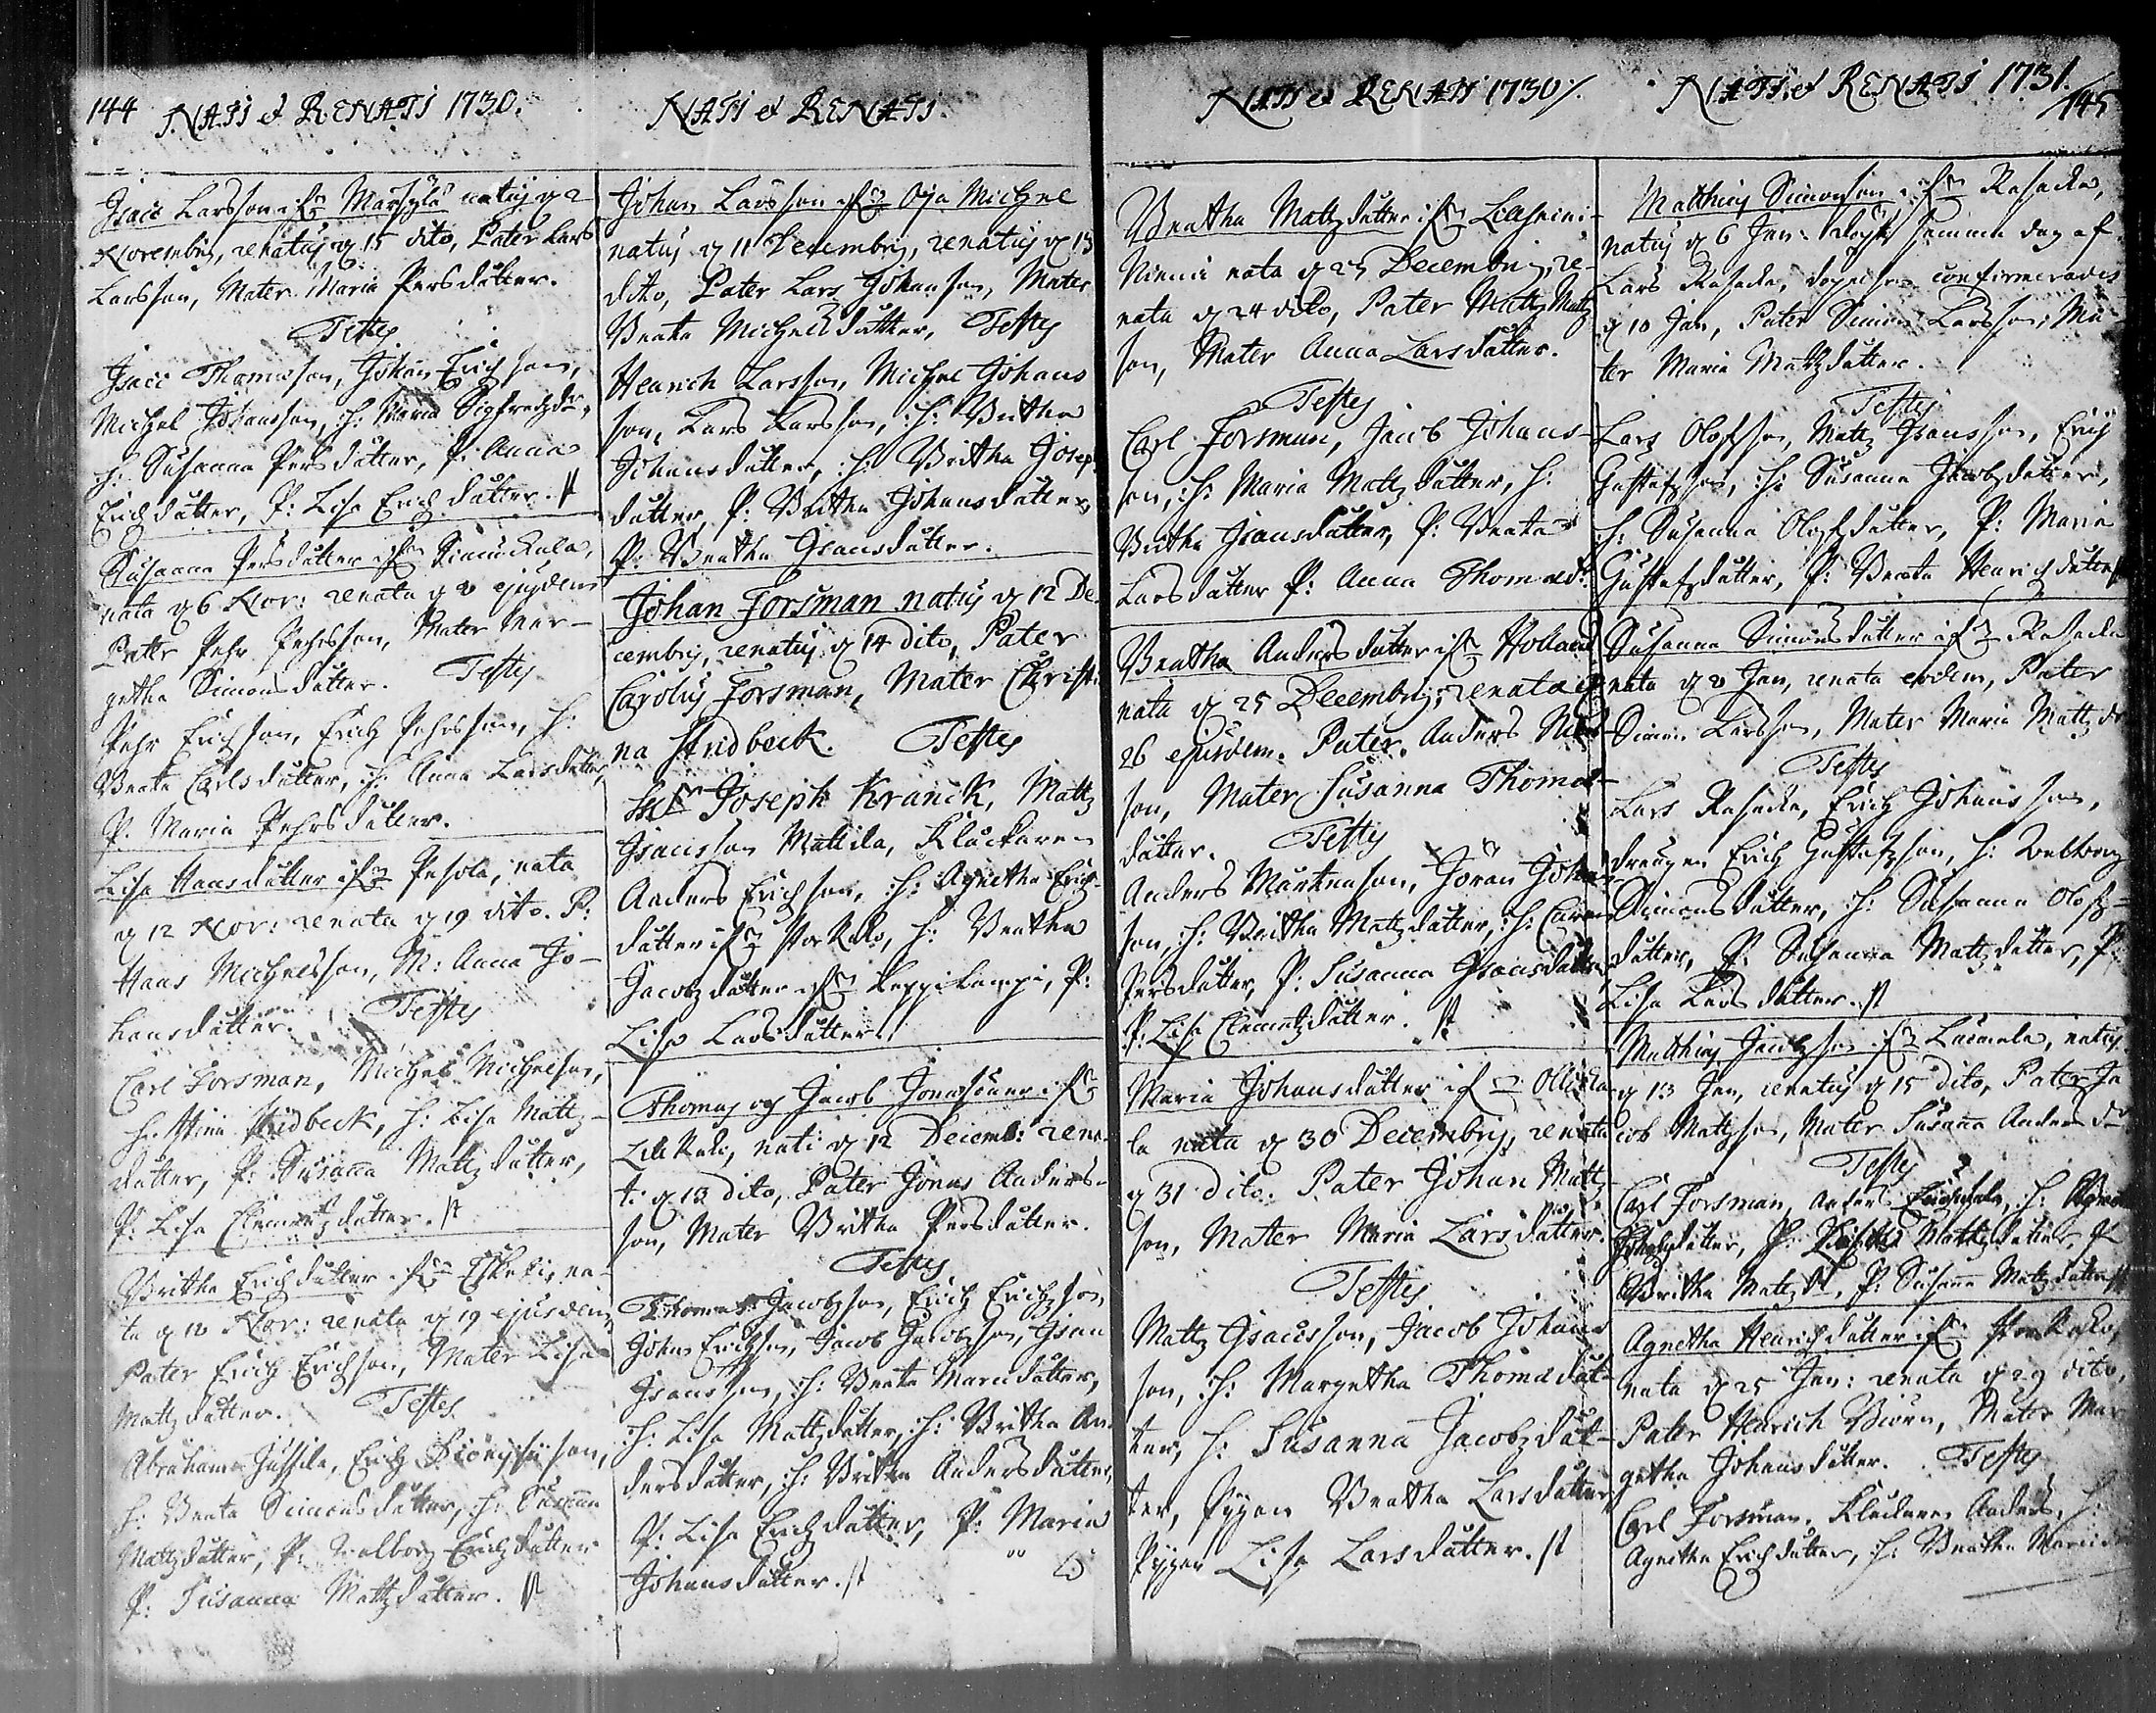 144 NATI et RENATI 1730.
Isaac Larsson ifrån Marsylä natus d 2
Novembris, renatus d 15 dito, Pater Lars
Larsson, Mater Maria Persdatter.
Testes
Isaac Thomasson, Johan Erichson,
Michel Johansson, h: Maria Sigfredzdr,
h: Susanna Persdatter, P: Anna
Erichdatter, P: Lisa Erichdatter. st
Susanna Persdatter ifrån
nata d 6 Nov: renata d 8 ejusdem
Pater Pehr Pehrsson, Mater Mar-
getha Simonsdatter. Testes
Pehr Erichson, Erich Pehrsson, h:
Beata Carlsdatter, h: Anna Larsdatter,
P: Maria Pehrsdatter.
Lisa Hansdatter ifrån Pesola, nata
d 12 Nov: renata d 19 dito. P:
Hans Michelsson, M: Anna Jo-
hansdatter. Testes
Carl Forsman, Michel Michelson,
h: Stina Stridbeck, h: Lisa Mattz-
datter, P: Susanna Mattzdatter,
P: Lisa Clemetzdatter. st
Britha Erichdatter ifrån na-
ta d 18 Nov: renata d 19 ejusdem,
Pater Erich Erichson, Mater Lisa
Mattzdatter. Testes
Abraham Jussila, Erich
h: Beata Simonsdatter, h: Susanna
Mattzdatter, P: Walborg Erichdatter
P: Susanna Mattzdatter. st
NATI et RENATI.
Johan Larsson ifrån Oja Michel
natus d 11 Decembris, renatus d 13
dito, Pater Lars Johanson, Mater
Beata Michelsdatter, Testes
Henrich Larsson, Michel Johans
son, Lars Larsson, h: Britha
Johansdatter, h: Britha Joseps
datter, P: Britha Johansdatter,
P: Beatha Isaacsdatter.
Johan Forsman natus d 12 De-
cembris, renatus d 14 dito, Pater
Carolus Forsman, Mater Christi-
na Stridbeck. Testes
Joseph Kranck, Mattz
Isacsson Mattila, Kläckaren
Anders Erichson, h: Agnetha Erich-
datter ifrån Storkako, h: Beatha
Jacobzdatter ifrån Leppilampi, P:
Lisa Larsdatter.
Thomas og Jacob Jonassöner ifrån
nati d 12 Decemb: rena-
ti d 13 dito, Pater Jonas Anders-
son, Mater Britha Persdatter.
Testes
Thomas Jacobsson, Erich Erichson,
Johan Erichson, Jacob Jacobsson,
h: Beata
h: Lisa Mattzdatter, h: Britha An-
dersdatter, h: Britha Andersdatter,
P: Lisa Erichdatter, P: Maria
Johansdatter. st
NATI et RENATI 1730/.
Beatha Mattzdatter ifrån
nata d 23 Decembris, re-
nata d 24 dito, Pater Mattz Mattz
son, Mater Anna Larsdatter.
Testes
Carl Forsman, Jacob Johans-
son, h: Maria Mattzdatter, h:
Britha datter, P: Beata
Larsdatter P: Anna Thomasdr
Beatha Andersdatter ifrån Holland
nata d 25 Decembris, renata
26 ejusdem. Pater. Anders
son, Mater Susanna Thomas-
datter. Testes
Anders Mårtenson, Jöran Johan
son, h: Britha Mattzdatter, h: Carin
Persdatter, P: Susanna
P: Lisa Clemetzdatter. st
Maria Johansdatter ifrån Ollicka
la nata d 30 Decembris, renata
d 31 dito. Pater Johan Mattz
son, Mater Maria Larsdatter
Testes
Mattz Isacsson, Jacob Johans
son, h: Margetha Thomasdat-
ter, h: Susanna Jacobzdat-
ter, Pigan Beatha Larsdatter
Pigan Lisa Larsdatter. st
NATI et RENATI 1731.
145
Matthias Simonson ifrån Rasacka,
natus d 6 Jan: döpt samma dag af
Lars Rasacka, döpelsen confirmerades
d 10 Jan, Pater Simon Larsson, Ma-
ter Maria Mattzdatter.
Testes
Lars Olofsson, Mattz Erich
Gustafson, h: Susanna Jacobzdatter,
h: Susanna Olofsdatter, P: Maria
Gustafsdatter, P: Beata Henrichdatter
Susanna Simonsdatter ifrån Rasacka
nata d 8 Jan, renata eodem, Pater
Simon Larsson, Mater Maria Mattzdr
Testes
Lars Rasacka, Erich Johansson,
drengen Erich Gustafson, h: Walborg
Simonsdatter, h: Susanna Olofs-
datter, P: Susanna Mattzdatter, P:
Lisa Larsdatter. st
Matthias Jacobsson ifrån natus
d 13 Jan, renatus d 15 dito, Pater Ja
cob Mattzson, Mater Susanna Andersdr
Testes
Carl Forsman, Anders h:
datter, P: Mattzdatter, P:
Britha Mattzdr, P: Susanna Mattzdatter
Agnetha Henrichdatter ifrån Storkako,
nata d 25 Jan: renata d 29 dito,
Pater Henrich Mater Mar
getha Johansdatter. Testes
Carl Forsman, Anders, h:
Agnetha Erichdatter, h: Beatha